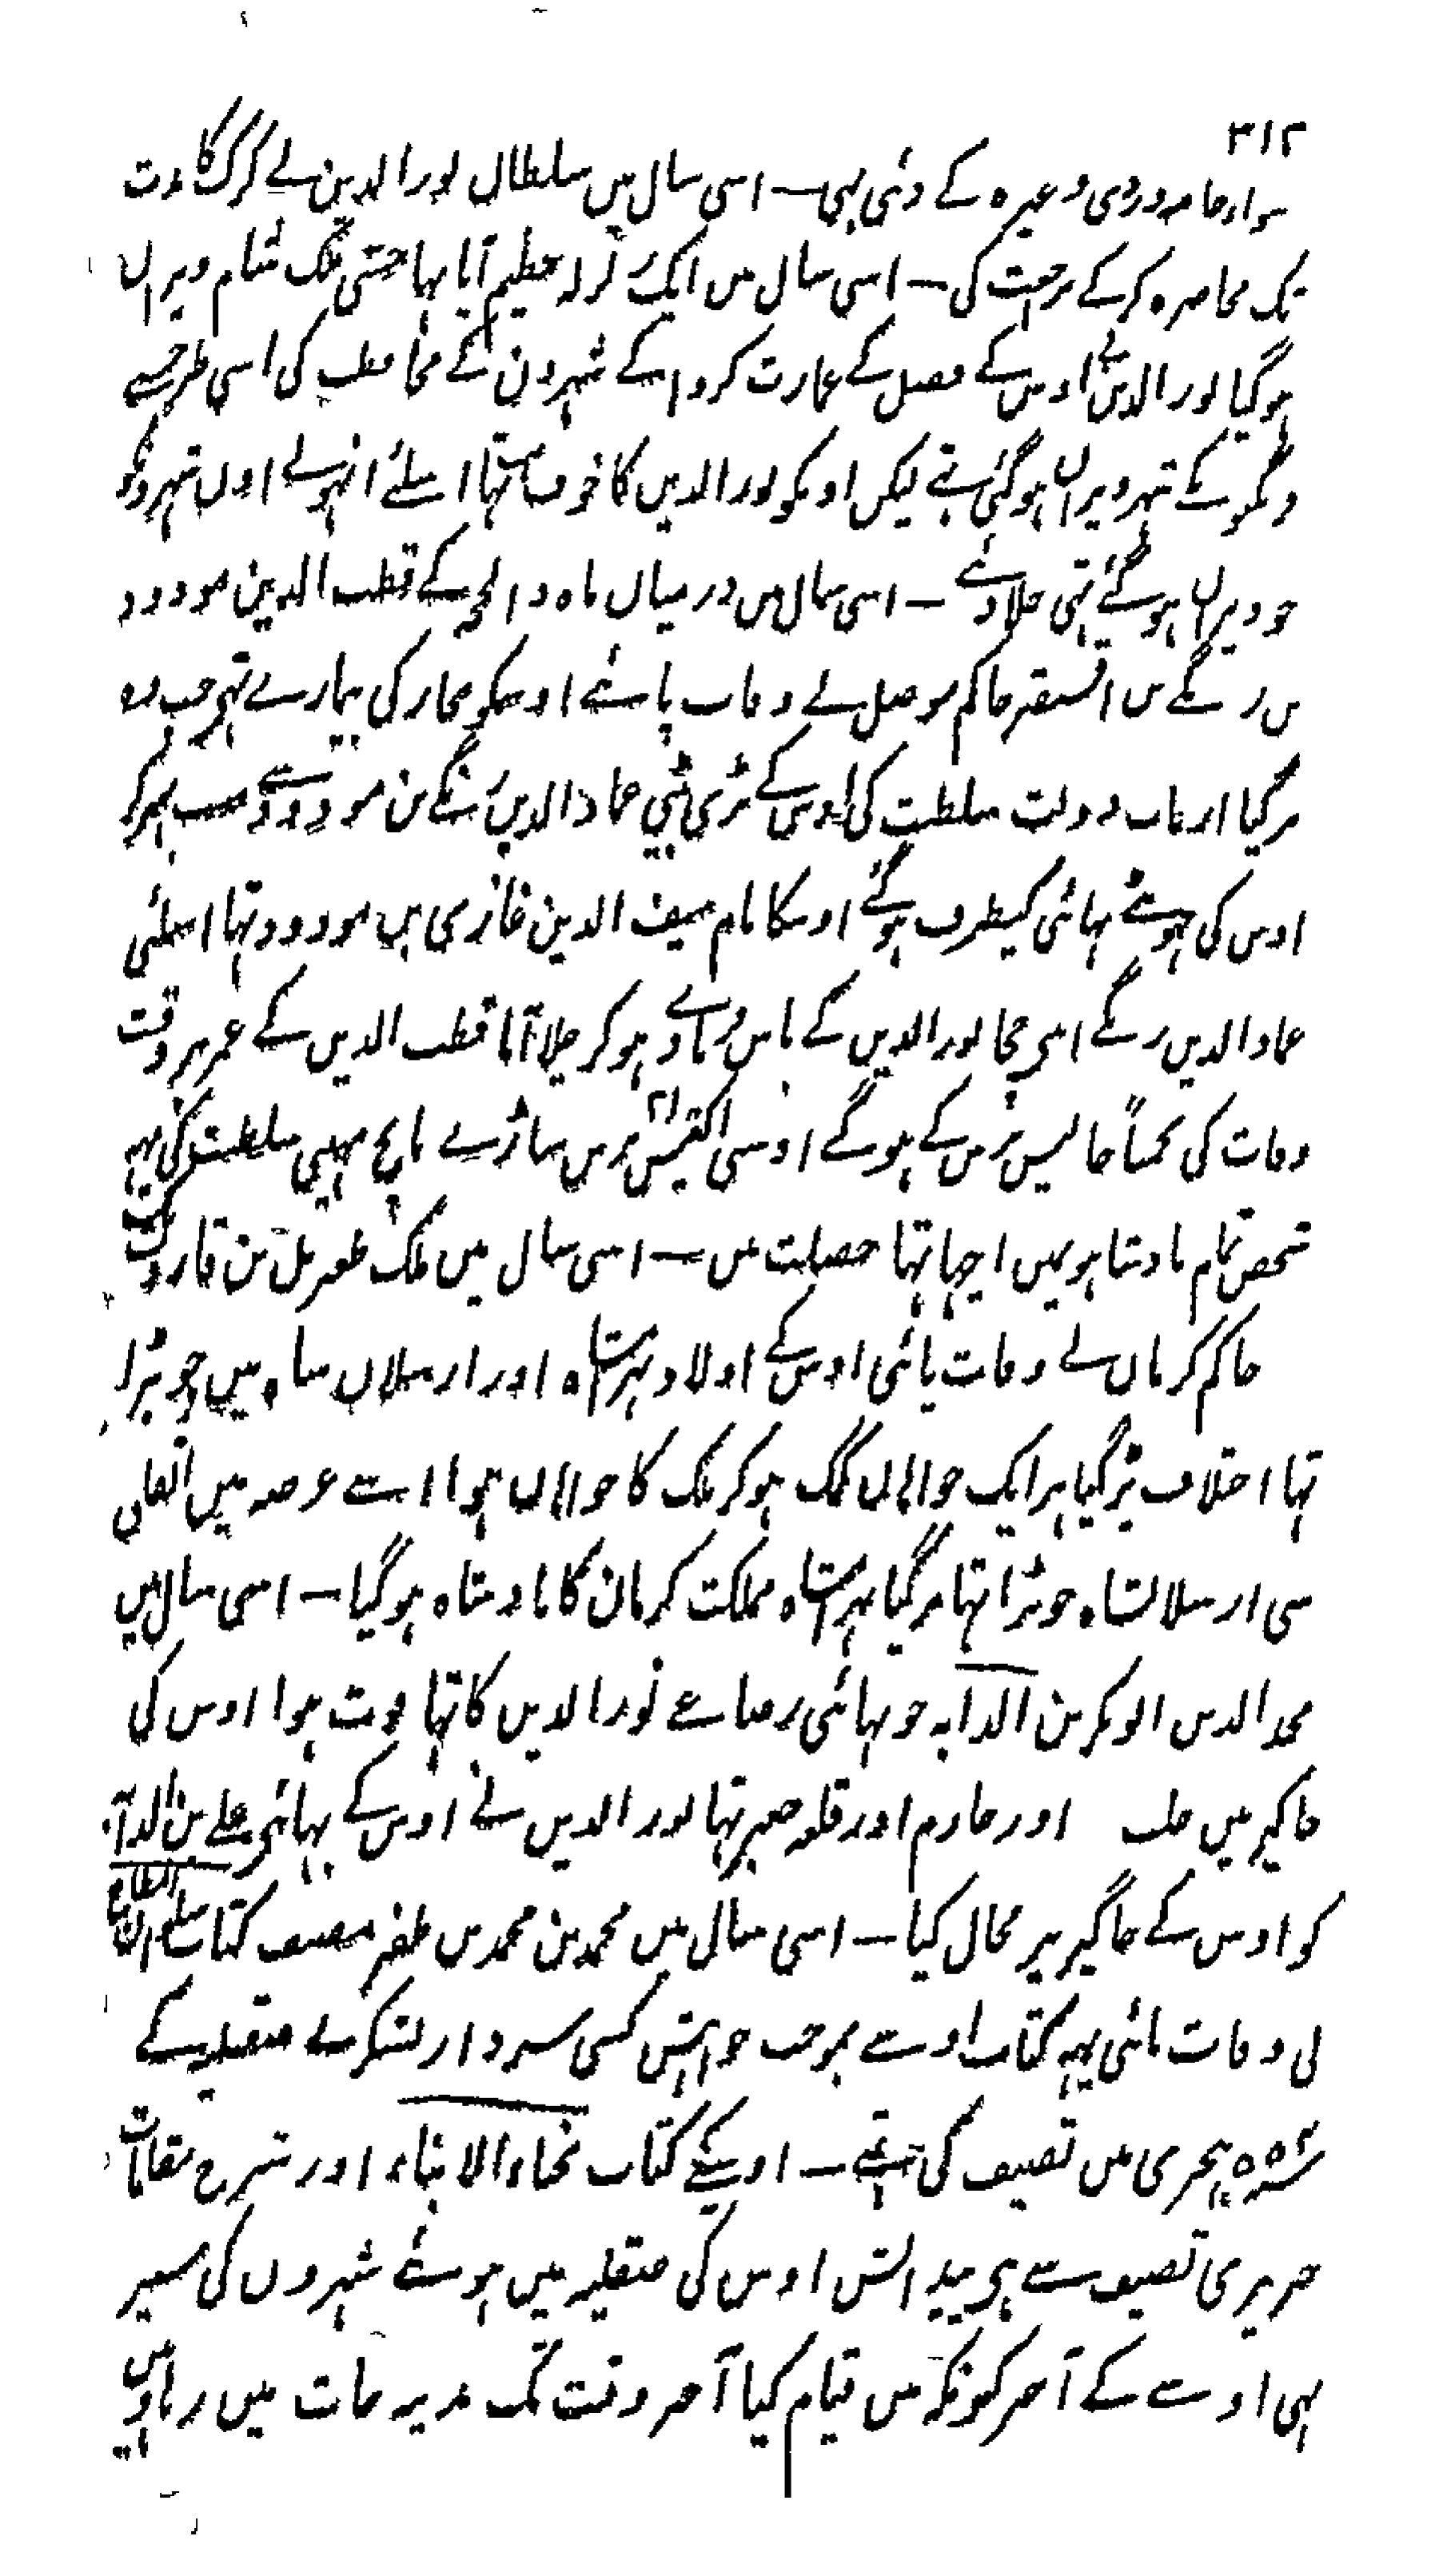 ۳۱۲
سوار حامہ وردی وغیرہ کے دئی ہی — اسی سال میں سلطان نور الدین نے کرک کا مدت
تک محاصرہ کرکے مرجعت کی — اسی سال میں ایک زلزلہ عظیم آیا تہا حتی ملک شام ویران
ہوگیا نور الدین نے اوس کے فصل کے عمارت کروا کے شہرون کے محافظت کی اسی طرحسے
فرنگیونکے شہر ویران ہوگئی تہے لیکن اونکو نور الدین کا خوف تہا اسلئے انہونے اول شہرونکو
جو ویران ہوگئے تہی جلادئے — اسی سال میں درمیان ماہ ذالحجہ کے قطب الدین مودود
بن زنگے بن اقسنقر حاکم موصل نے وفات پائے اوسکو بخار کی بیمارے تہی جب وہ
مرگیا ارباب دولت سلطنت کی اوس کے بڑی بیٹی عماد الدین زنگے بن مودود سے پہر کر
اوس کی چہوٹے بہائی کیطرف ہوگئے اوسکا نام سیف الدین غازی بن مودود تہا اسلئی
عماد الدین زنگے اپنی چچا نور الدین کے پاس فریادے ہوکر چلا آیا قطب الدین کے عمر بروقت
وفات کی تخمیناً چالیس برس کے ہوگے اوسی اکتیس ۲۱ برس ساڑے پانچ مہینی سلطنت کی یہہ
شخص تمام بادشاہونمیں اچہا تہا خصلت میں — اسی سال میں ملک طغریل بن قاروت بک
حاکم کرمان نے وفات پائی اوس کے اولاد بہرامشاہ اور ارسلان شاہ میں جو بڑا
تہا اختلاف پڑگیا ہر ایک خواہان کمک ہوکر ملک کا خواہان ہوا اسے عرصہ میں اتفاق
سی ارسلانشاہ جو بڑا تہا مرگیا بہرامشاہ مملکت کرمان کا بادشاہ ہوگیا — اسی سال میں
مجد الدین ابوبکر بن الدایہ جو بہائی رضاعے نور الدین کا تہا فوت ہوا اوس کی
جاگیر میں حلب اور حارم اور قلعہ جعبر تہا نور الدین نے اوس کے بہائی علے بن الدایہ
کو اوس کے جاگیر پر بحال کیا — اسی سال میں محمد بن محمد بن ظفر مصنف کتاب سلوان المطاع
نی وفات پائی یہہ کتاب اوسے بموجب خواہش کسی سردار لشکر کے صقلیہ کے
۵۵۴ ہجری میں تصنیف کی تہے — اوسیکے کتاب نجباء الابناء اور شرح مقامات
حریری تصنیف سے ہی پیدائش اوس کی صقلیہ میں ہوئے شہروں کی سیر
بہی اوسے کے آخر کونکہ میں قیام کیا آخر وقت تک مدینہ حمات میں رہا وہیں